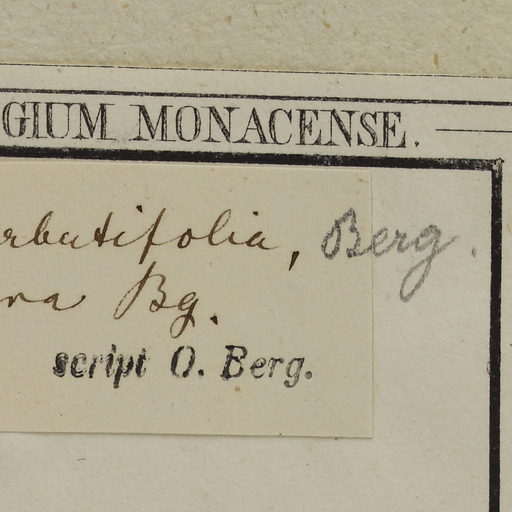 GIUM MONACENSE.
rbutifolia, Berg.
ra Bg.
script O. Berg.